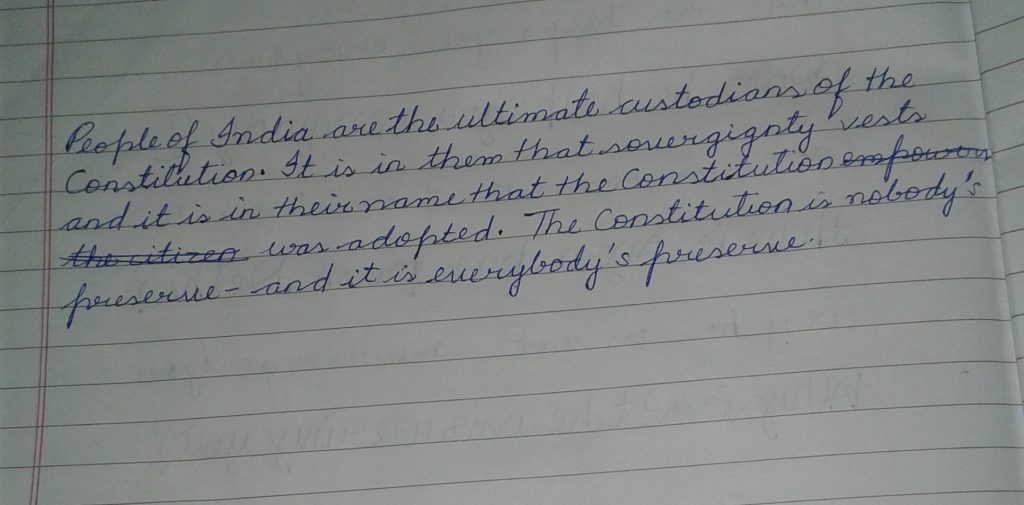 People of India are the ultimate custodians of the
Constitution. It is in them that sovergignty vests
and it is in their name that the Constitution empowers
the citizen was adopted. The Constitution is nobody's
preserve - and it is everybody's preserve.